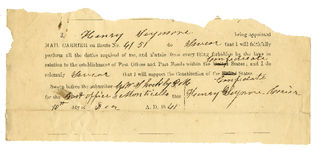 I, Henry Seymore being appointed
MAIL CARRIER on Route No 6151 do swear that I will faithfully
perform all the duties required of me, and abstain from every thing forbidden by the laws in
relation to the establishment of Post Offices and Post Roads within the Confederate States; and I do
solemnly swear that I will support the Constitution of the Confederate States.
Sworn before the subscriber
for the Post office Monticello this Henry Seymore Carrier
10th day of A. D. 1861